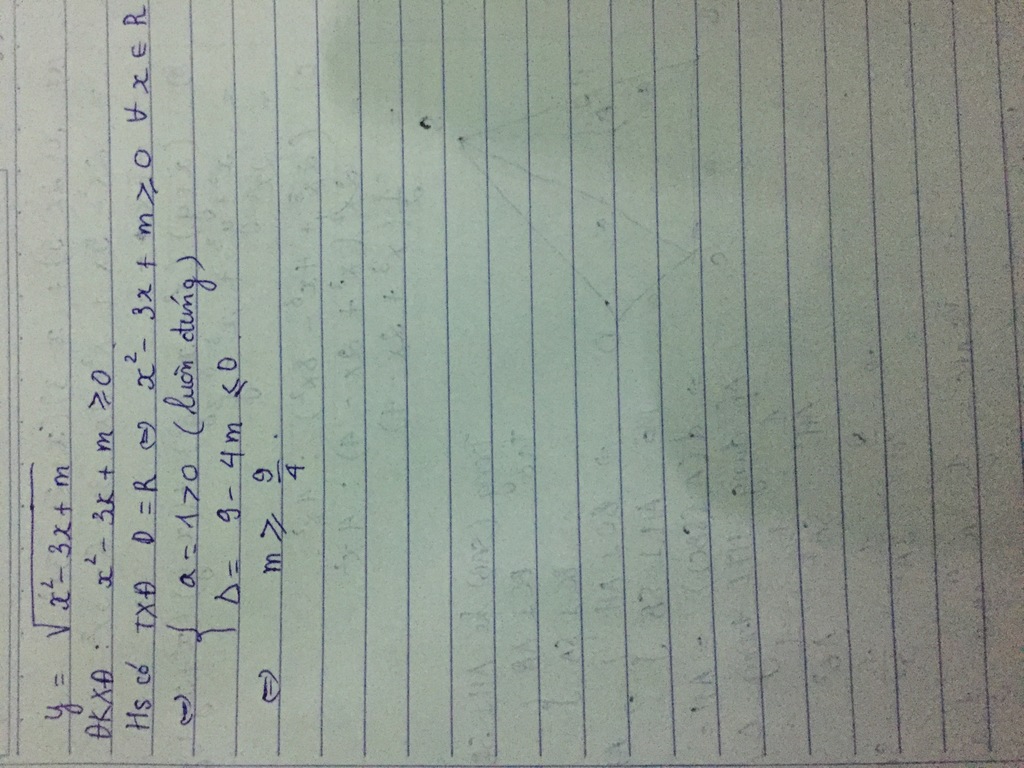 y = √(x² - 3x + m)
ĐKXĐ: x² - 3x + m ≥ 0
Hs có TXĐ D = R ⇔ x² - 3x + m ≥ 0 ∀ x ∈ R
⇔ { a = 1 > 0 (luôn đúng)
Δ = 9 - 4m ≤ 0
⇔ m ≥ 9/4.